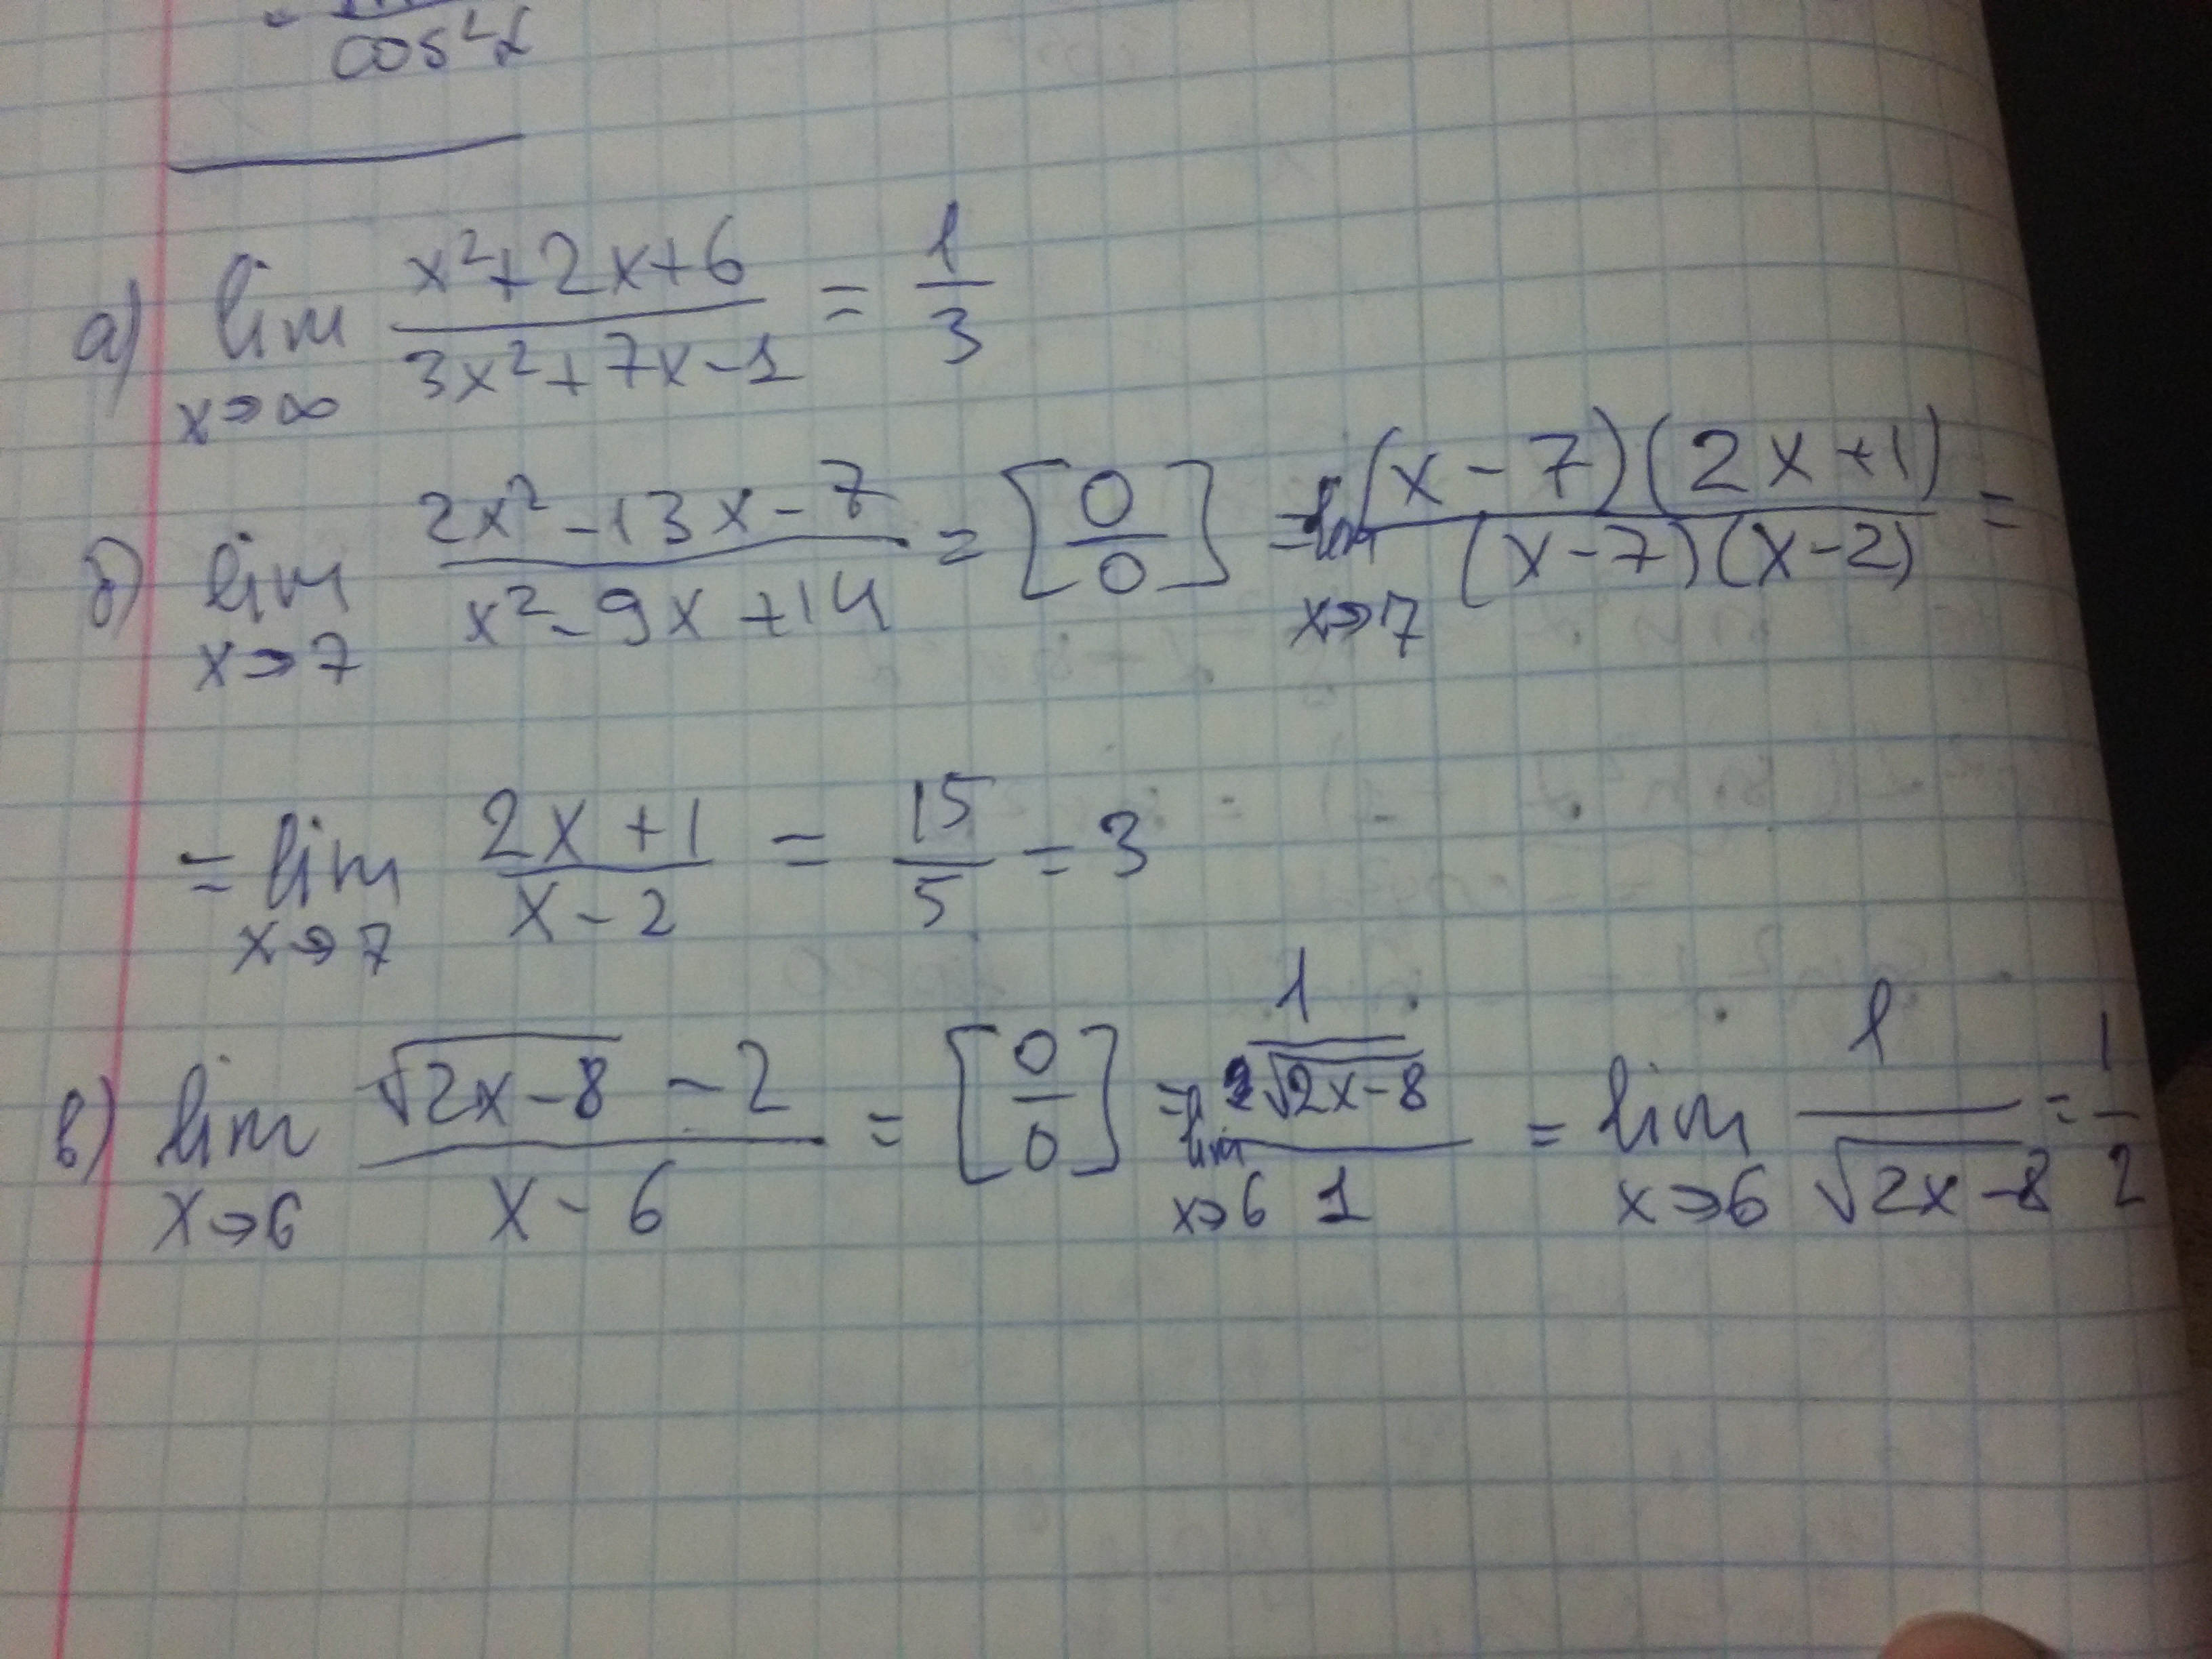 cos²α
а) lim x→∞ (x²+2x+6)/(3x²+7x-1) = 1/3
б) lim x→7 (2x²-13x-7)/(x²-9x+14) = [0/0] = lim x→7 ((x-7)(2x+1))/((x-7)(x-2)) =
= lim x→7 (2x+1)/(x-2) = 15/5 = 3
в) lim x→6 (√(2x-8) - 2)/(x-6) = [0/0] = lim x→6 (1/(2√(2x-8)))/1 = lim x→6 1/√(2x-8) = 1/2